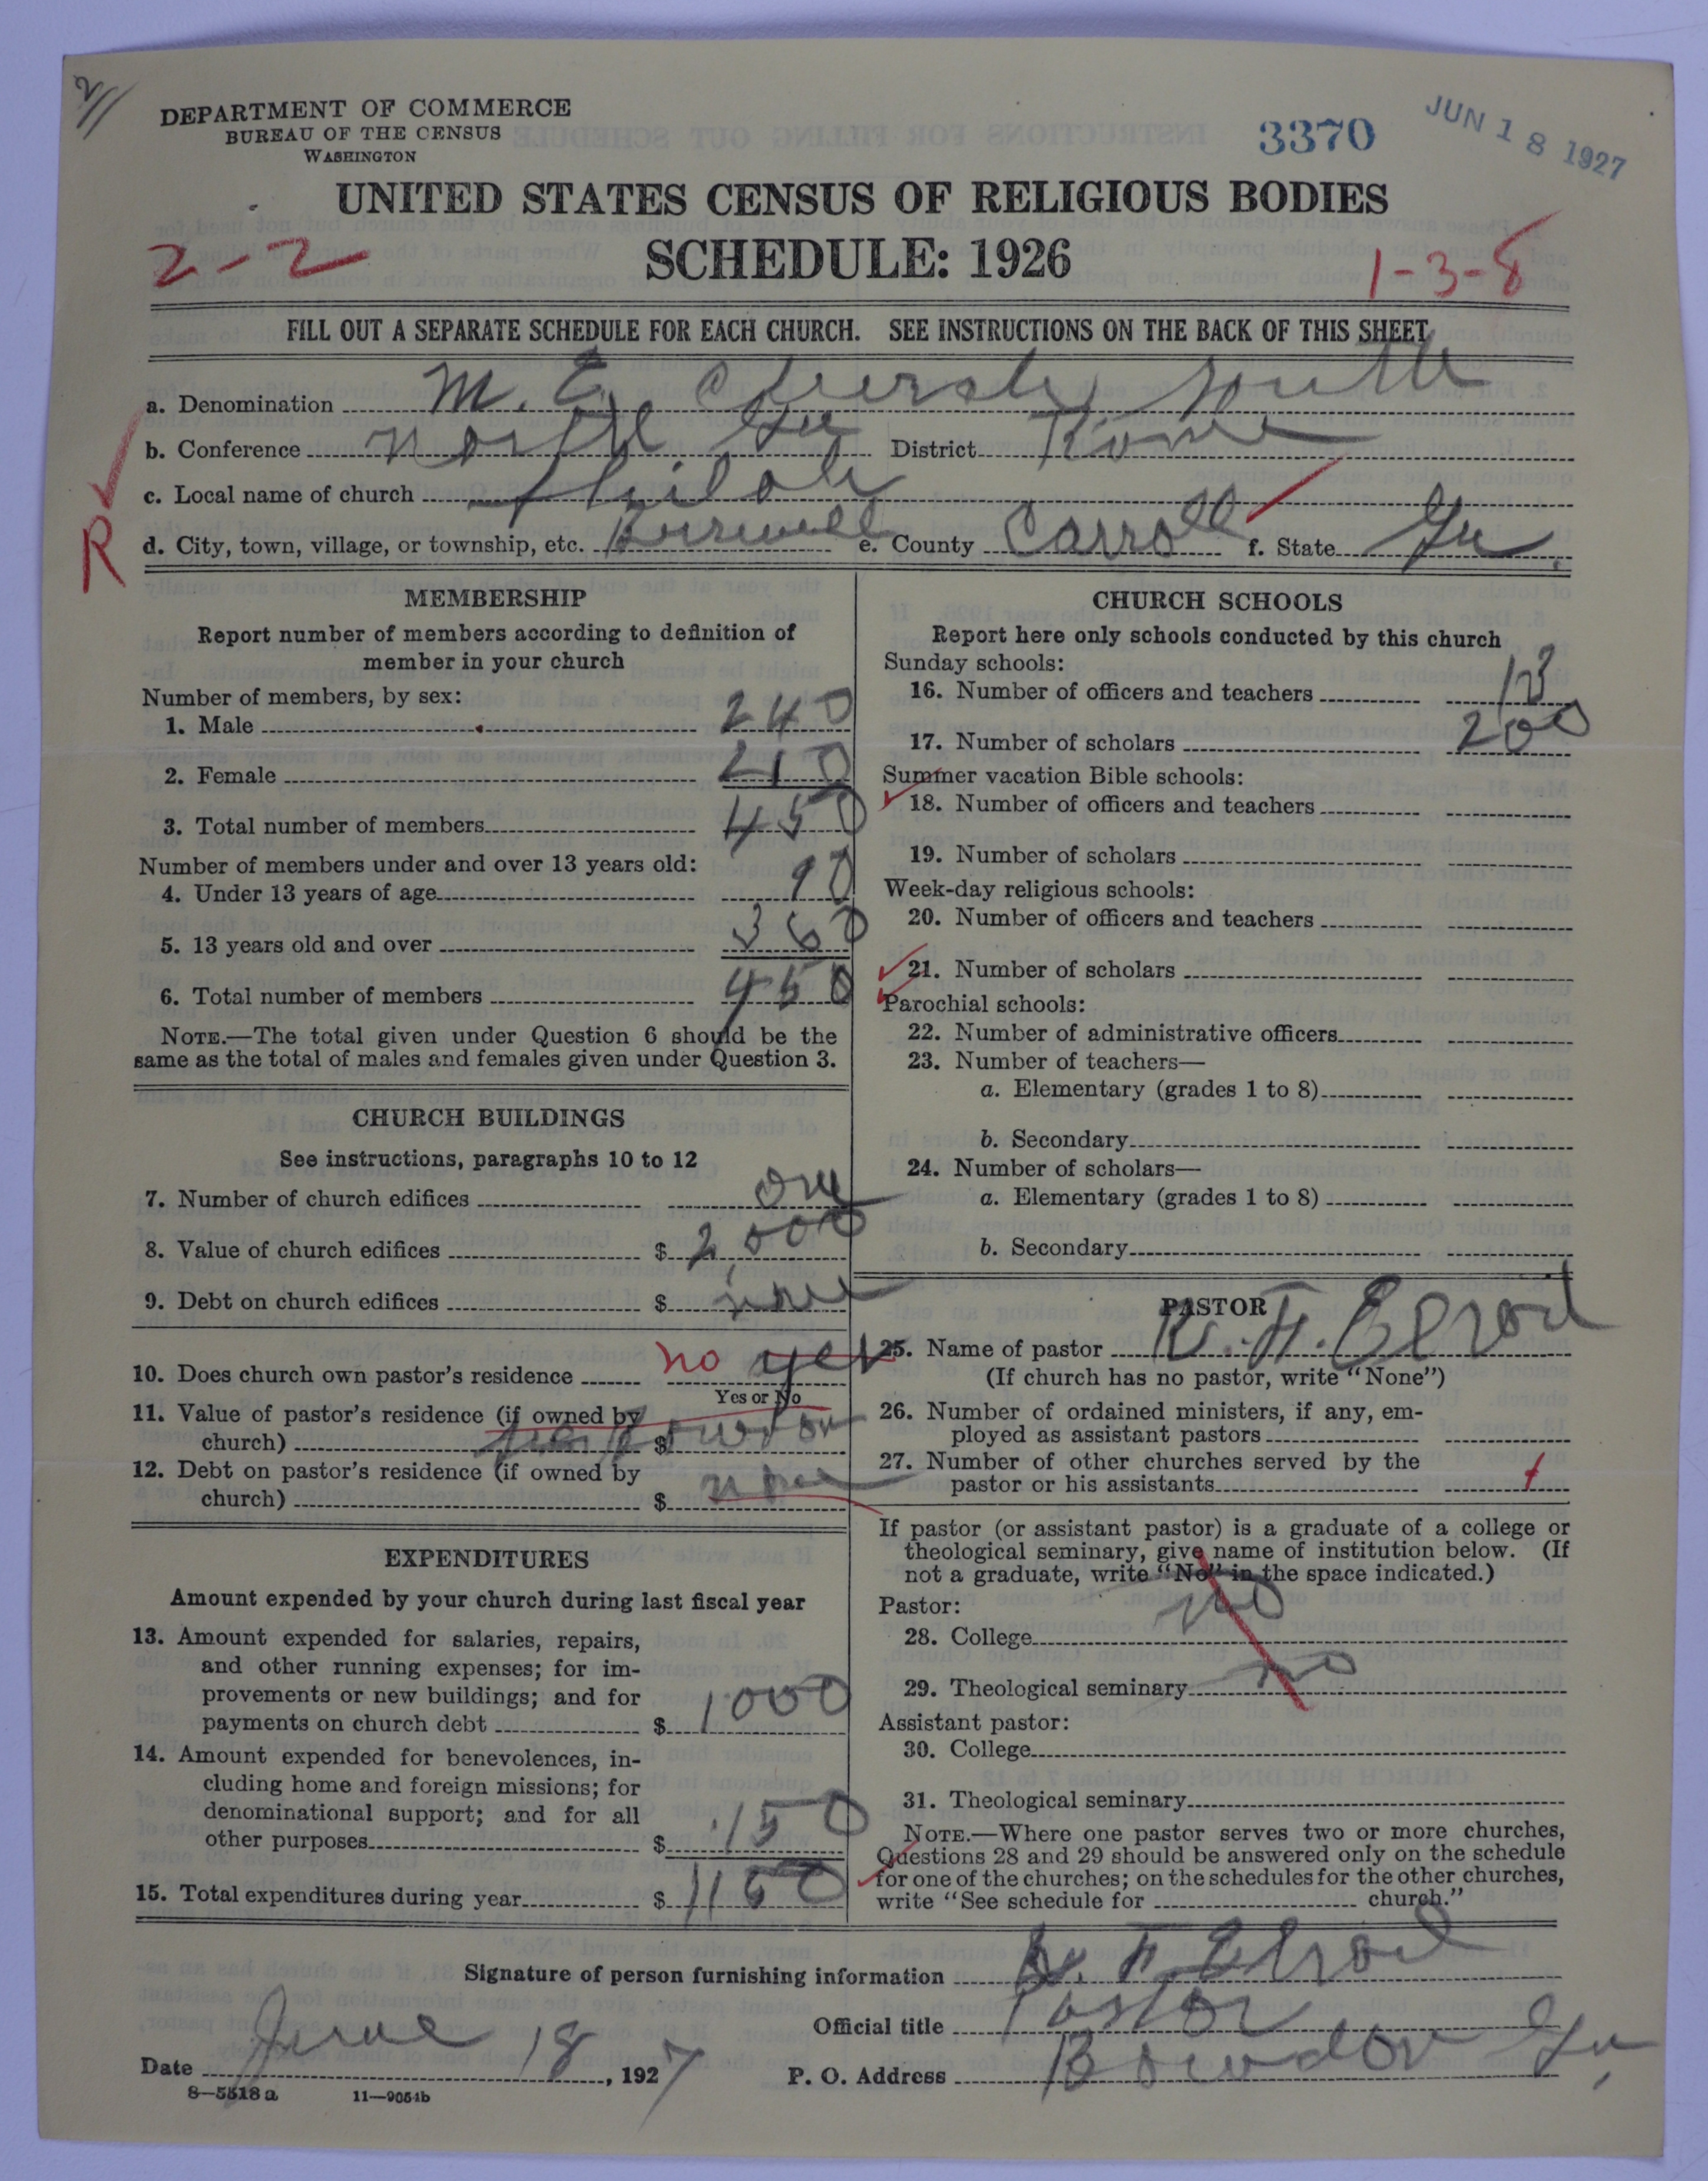 2//
DEPARTMENT OF COMMERCE
BUREAU OF THE CENSUS
WASHINGTON
3370
JUN 18 1927
UNITED STATES CENSUS OF RELIGIOUS BODIES
SCHEDULE: 1926
2-2
1-3-8
FILL OUT A SEPARATE SCHEDULE FOR EACH CHURCH. SEE INSTRUCTIONS ON THE BACK OF THIS SHEET
a. Denomination M. E. Church, South
b. Conference North Ga District Rome
c. Local name of church Shiloh
R
d. City, town, village, or township, etc. Burwell e. County Carroll f. State Ga.
MEMBERSHIP
Report number of members according to definition of
member in your church
Number of members, by sex:
1. Male 240
2. Female 210
3. Total number of members 450
Number of members under and over 13 years old:
4. Under 13 years of age 90
5. 13 years old and over 360
6. Total number of members 450
NOTE.—The total given under Question 6 should be the
same as the total of males and females given under Question 3.
CHURCH BUILDINGS
See instructions, paragraphs 10 to 12
7. Number of church edifices one
8. Value of church edifices $ 2,000
9. Debt on church edifices $ none
10. Does church own pastor's residence no yes
Yes or No
11. Value of pastor's residence (if owned by
church) $ Bowdon
12. Debt on pastor's residence (if owned by
church) $ none
EXPENDITURES
Amount expended by your church during last fiscal year
13. Amount expended for salaries, repairs,
and other running expenses; for im-
provements or new buildings; and for
payments on church debt $ 1000
14. Amount expended for benevolences, in-
cluding home and foreign missions; for
denominational support; and for all
other purposes $ 150
15. Total expenditures during year $ 1150
CHURCH SCHOOLS
Report here only schools conducted by this church
Sunday schools:
16. Number of officers and teachers 13
17. Number of scholars 200
Summer vacation Bible schools:
18. Number of officers and teachers
19. Number of scholars
Week-day religious schools:
20. Number of officers and teachers
21. Number of scholars
Parochial schools:
22. Number of administrative officers
23. Number of teachers—
a. Elementary (grades 1 to 8)
b. Secondary
24. Number of scholars—
a. Elementary (grades 1 to 8)
b. Secondary
PASTOR
25. Name of pastor W. H. Elrod
(If church has no pastor, write "None")
26. Number of ordained ministers, if any, em-
ployed as assistant pastors
27. Number of other churches served by the
pastor or his assistants
If pastor (or assistant pastor) is a graduate of a college or
theological seminary, give name of institution below. (If
not a graduate, write "No" in the space indicated.)
Pastor:
28. College no
29. Theological seminary no
Assistant pastor:
30. College
31. Theological seminary
NOTE.—Where one pastor serves two or more churches,
Questions 28 and 29 should be answered only on the schedule
for one of the churches; on the schedules for the other churches,
write "See schedule for church."
Signature of person furnishing information Elrod
Official title Pastor
Date June 18, 1927 P. O. Address Bowdon Ga,
8—5518 a 11—9054b